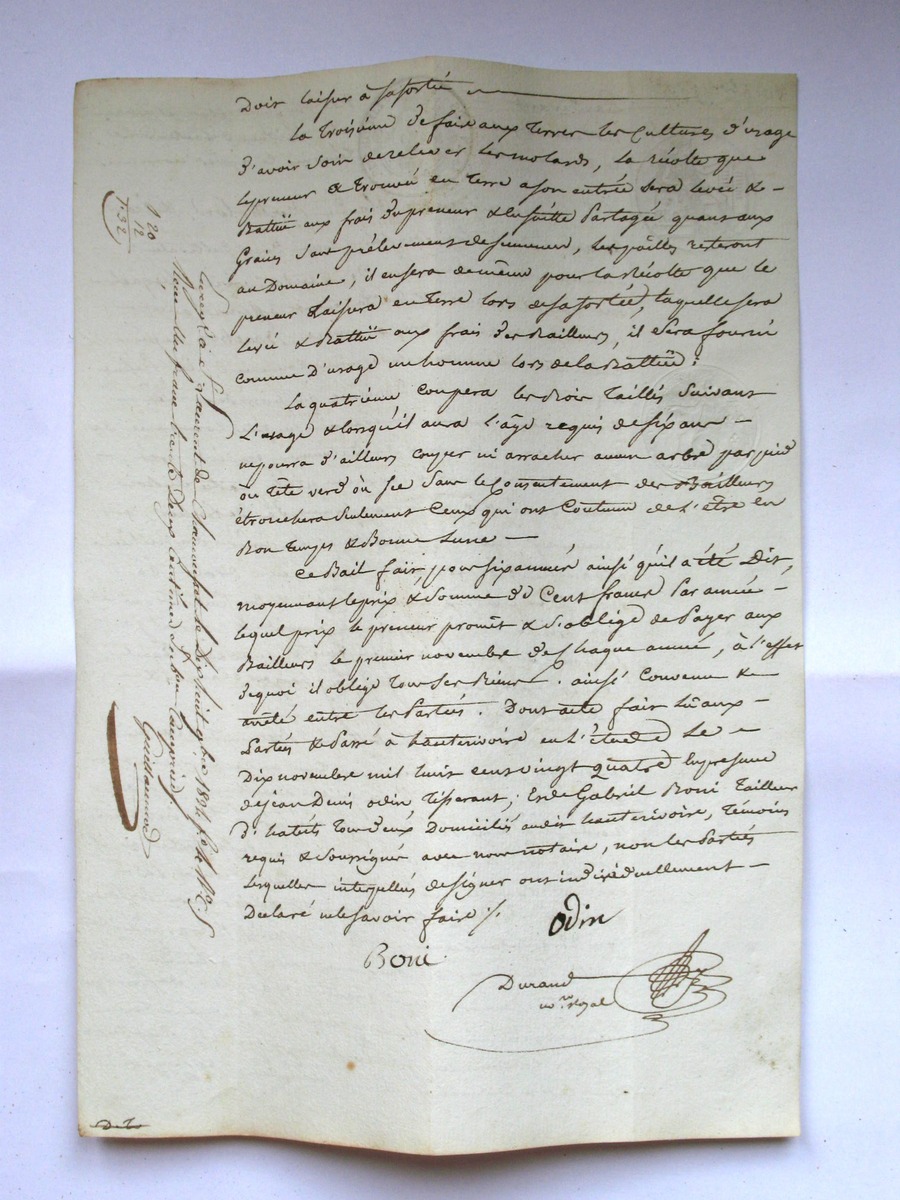 Doit laisser à sa sortie
La troisième de faire aux terres les cultures d'usage
d'avoir soin de relever les molards, la récolte que
le preneur a trouvé en terre a son entrée sera levée &
Battüe aux frais du preneur & ensuitte Partagée quant aux
Graines sans prélevement de semences, les pailles resteront
au Domaine, il en sera de même pour la Récolte que le
preneur laissera en terre lors de sa sortie, laquelle sera
levée & Battüe aux frais des Bailleurs, il sera fourni
comme D'usage un homme lors de la Battüe;
La quatrième coupera les Bois Taillés suivant
L'usage & lorsqu'il aura L'âge requis de six ans
ne pourra d'ailleurs couper ni arracher aucun arbre par pied
ou tête verd ou sec sans le Consentement des Bailleurs
étronchera seulement Ceux qui ont Coutume de L'être en
Bon temps & Bonne Lune
Ce Bail fait pour six années ainsi qu'il a été Dit,
moyennant le prix & Somme de Cent francs Par année
lequel prix le preneur promet & s'oblige de Payer aux
Bailleurs le premier novembre de chaque année, à l'effet
de quoi il oblige tous ses Biens. ainsi Convenu &
arrêté entre les Parties. Dont acte fait Lû aux
Parties & Passé à hauterivoire en L'étude Le
Dix novembre mil huit cent vingt quatre En presence
de jean Denis odin Tisserant, & de Gabriel Boni Tailleur
d'habits tous deux Domiciliés audit hauterivoire, témoins
requis & soussignés avec nous notaire, non les Parties
Lesquelles interpellées de signer ont individuellement
Declaré ne le savoir faire ./.
odin
Boni
Durand
no.re Royal
1 20
12
1.32
Enreg. à S. Laurent de Chamousset le Dix huit 9bre 1824 f°
Reçu un franc trente Deux centimes
Guillaumod